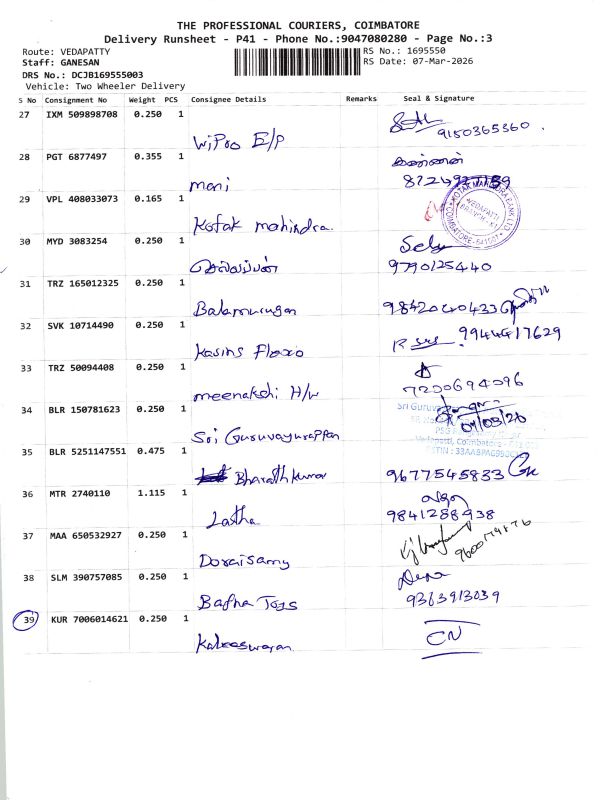 THE PROFESSIONAL COURIERS, COIMBATORE
Delivery Runsheet - P41 - Phone No.:9047080280 - Page No.:3
Route: VEDAPATTY
RS No.: 1695550
Staff: GANESAN
RS Date: 07-Mar-2026
DRS No.: DCJB169555003
Vehicle: Two Wheeler Delivery
S No Consignment No Weight PCS Consignee Details Remarks Seal & Signature
27 IXM 509898708 0.250 1
WiPro E/P 9150365360.
28 PGT 6877497 0.355 1
mani
29 VPL 408033073 0.165 1
Kotak mahindra.
KOTAK MAHINDRA BANK LTD
VEDAPATTI
BRANCH
COIMBATORE - 641007
30 MYD 3083254 0.250 1 Selv
செல்லப்பன் 9790125440
31 TRZ 165012325 0.250 1
Balamurugan 9842040433
32 SVK 10714490 0.250 1
Kasins Floxio 9944417629
33 TRZ 50094408 0.250 1
meenakshi H/W 7200694096
34 BLR 150781623 0.250 1
Sri Guruvayurappan
Sri Guruv
07/03/26
Vedapatti, Coimbatore
35 BLR 5251147551 0.475 1
Bharathkumar 9677545833
36 MTR 2740110 1.115 1
Latha 9841288938
37 MAA 650532927 0.250 1
Doraisamy
38 SLM 390757085 0.250 1
Bafna Toys 9363913039
39 KUR 7006014621 0.250 1
Kaleeswaran CN